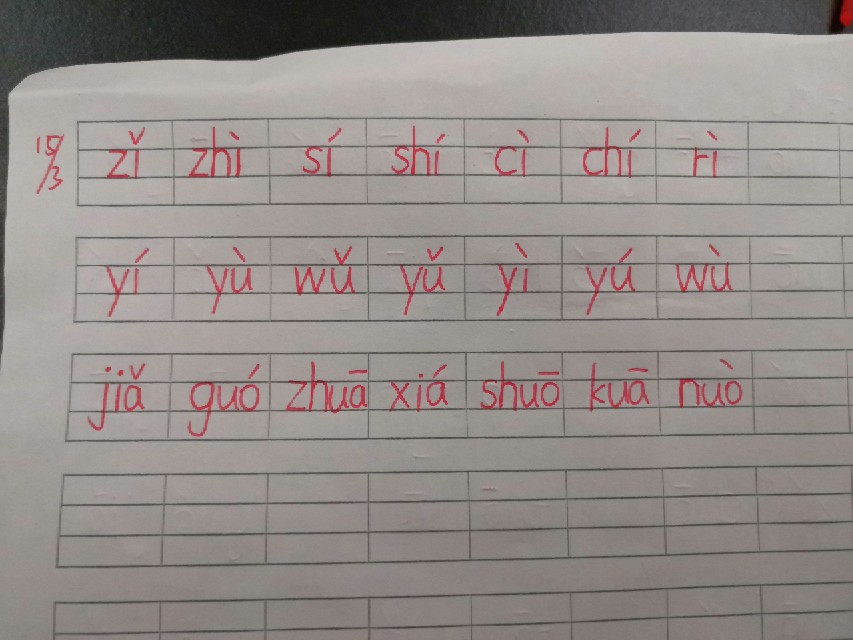 15/3 zǐ zhì sí shí cì chí rì
yí yù wǔ yǔ yì yú wù
jiǎ guó zhuā xiá shuō kuā nuò